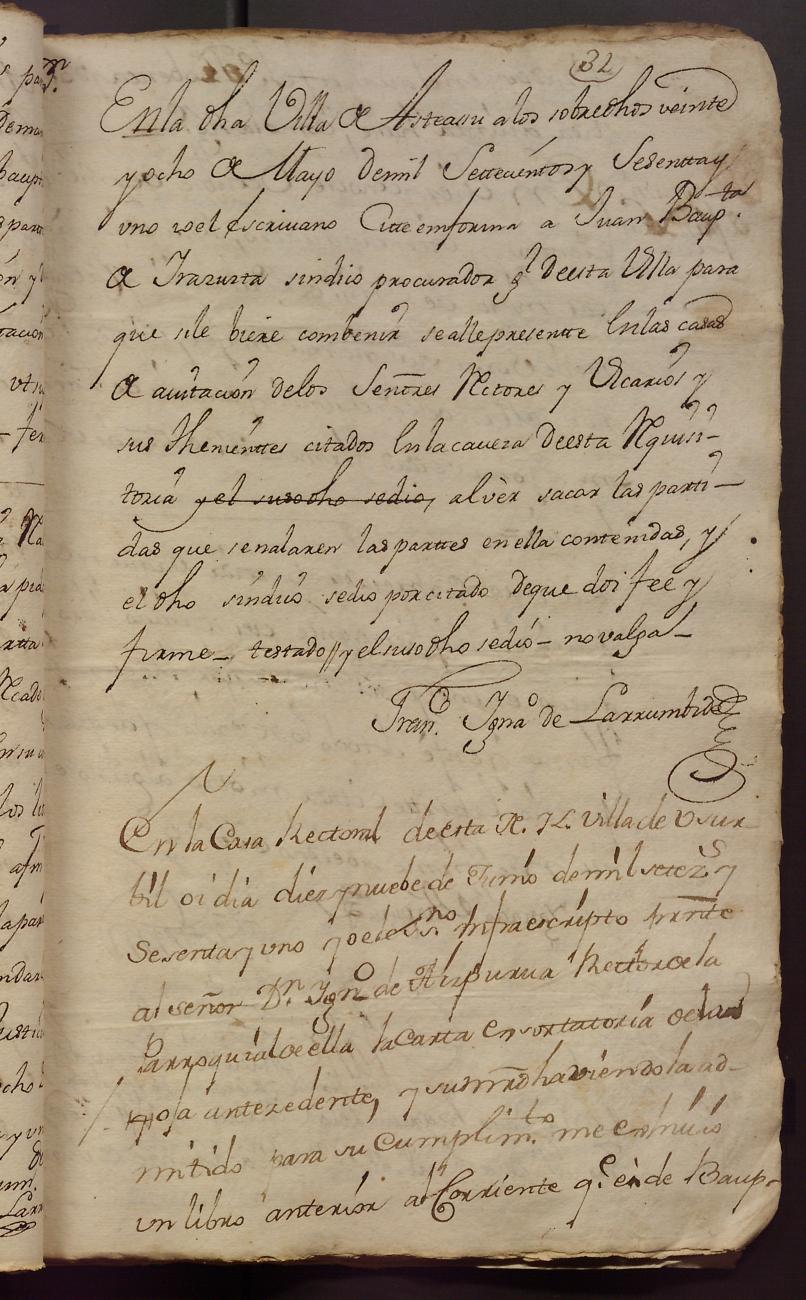 32
En la dha Villa de Asteasu a los sobredhos veinte
y ocho de Mayo de mil Settecientos y Sesentta y
uno io el Escriuano Citte en forma a Juan Bap.ta
de Irazusta sindico procurador g.l de esta Villa para
que si le biere combenir se alle presentte en las casas
de auitacion de los Señores Rectores y Vicarios y
sus Thenienttes citados en la cauera de esta Requisi-
toria y el susodho sedio, al ver sacar las parti-
das que senalaren las parttes en ella contenidas, y
el dho sindico sedio por citado de que doi fee y
firme - testado // y el susodho sedio - no valga -
Fran.co Ign.o de Larrumbide
En la Casa Rectoral de esta N. y L. Villa de Usur-
bil oi dia diez y nuebe de Junio de mil setez.s y
Sesenta y uno yo el Es.no Infraescripto
al señor D.n Ign.o de Aizpurua Rector de la
Parroquial de ella la Carta Ensortatoria de la
foja antezedente, y su mrd haviendola ad-
mitido para su Cumplim.to me exhiuio
un libro anterior al Corriente q.e es de Baup-